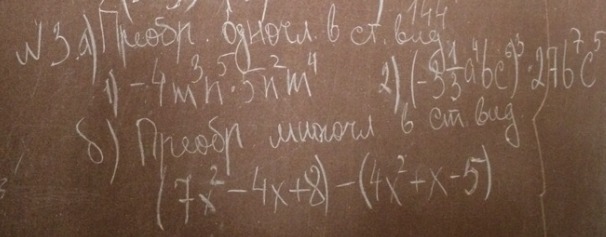 144
№3.а) Преобр. одночл. в ст. вид
1) -4m³n⁵·5n²m⁴ 2) (-3⅓a⁴bc⁹)³·27b⁷c⁵
б) Преобр многочл в ст. вид.
(7x² - 4x + 8) - (4x² + x - 5)